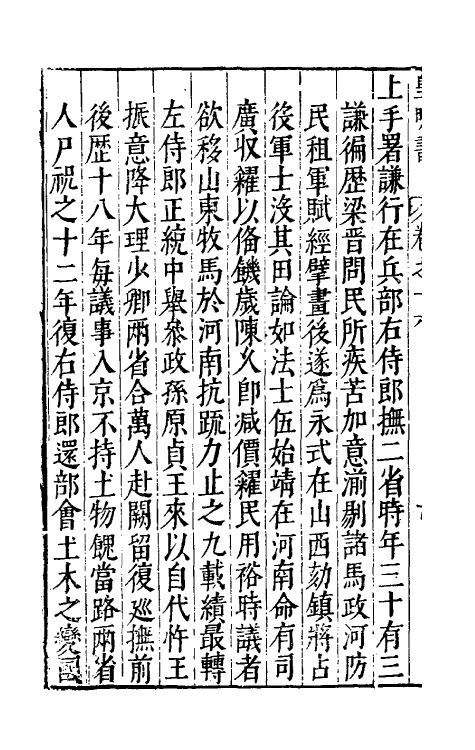 皇明書 卷之十六
上手署謙行在兵部右侍郎撫二省時年三十有三
謙徧歷梁晉問民所疾苦加意湔剔諸馬政河防
民租軍賦經擘畫後遂爲永式在山西劾鎮將占
役軍士沒其田論如法士伍始靖在河南命有司
廣収糴以俻饑歲陳乆卽减價糴民用裕時議者
欲移山東牧馬於河南抗䟽力止之九載績最轉
左侍郎正統中舉叅政孫原貞王來以自代忤王
振意降大理少卿兩省合萬人赴闕留復廵撫前
後歷十八年每議事入京不持土物餽當路兩省
人尸祝之十二年復右侍郎還部會土木之變國